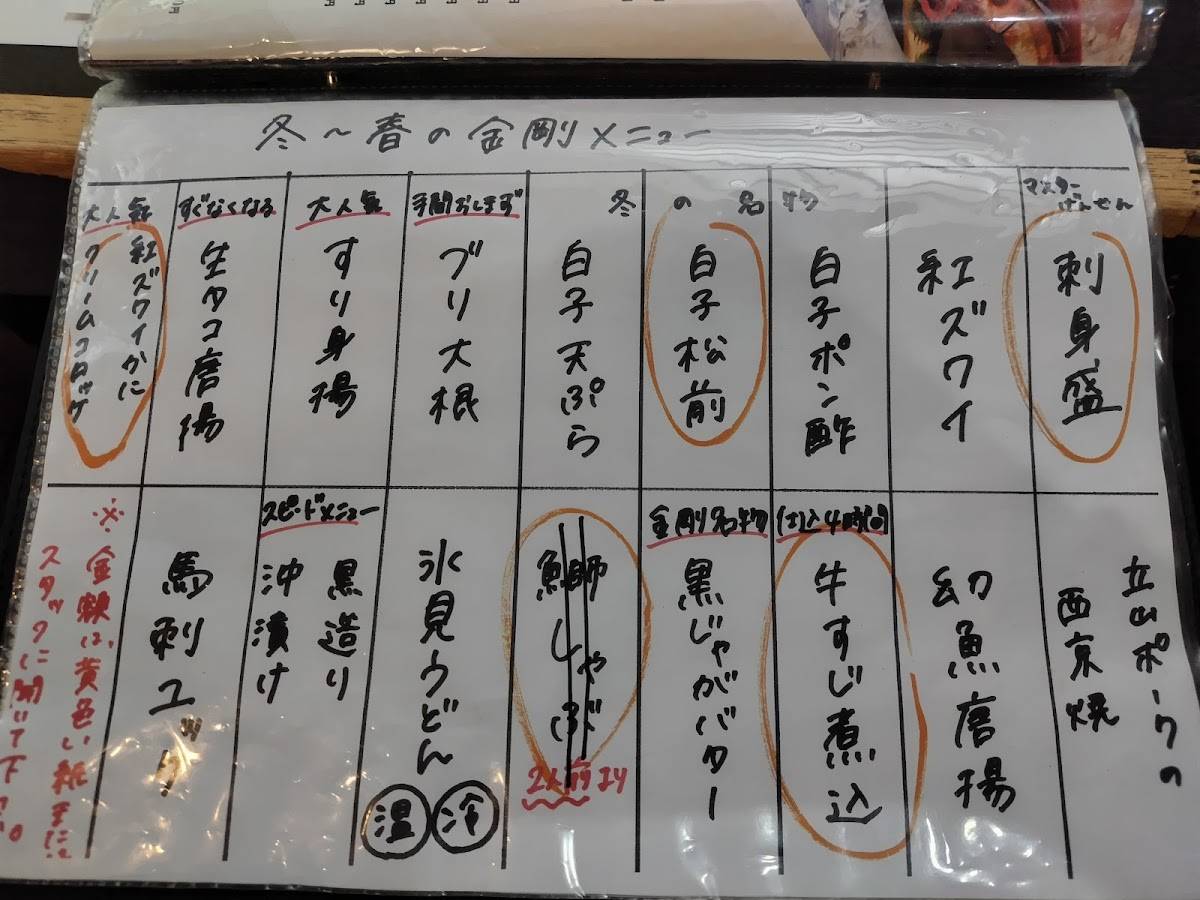 冬～春の金剛メニュー
マスター
げんせん
刺身盛
紅ズワイ
冬の名物
白子ポン酢
白子松前
白子天ぷら
手間おしまず
ブリ大根
大人気
すり身揚
すぐなくなる
生タコ唐揚
大人気
紅ズワイかに
クリームコロッケ
立山ポークの
西京焼
幻魚唐揚
仕込4時間
牛すじ煮込
金剛名物
黒じゃがバター
鰤しゃぶ
2人前より
氷見うどん
温 冷
スピードメニュー
黒造り
沖漬け
馬刺ユッケ
※金額は、黄色い紙または
スタッフに聞いて下さい。